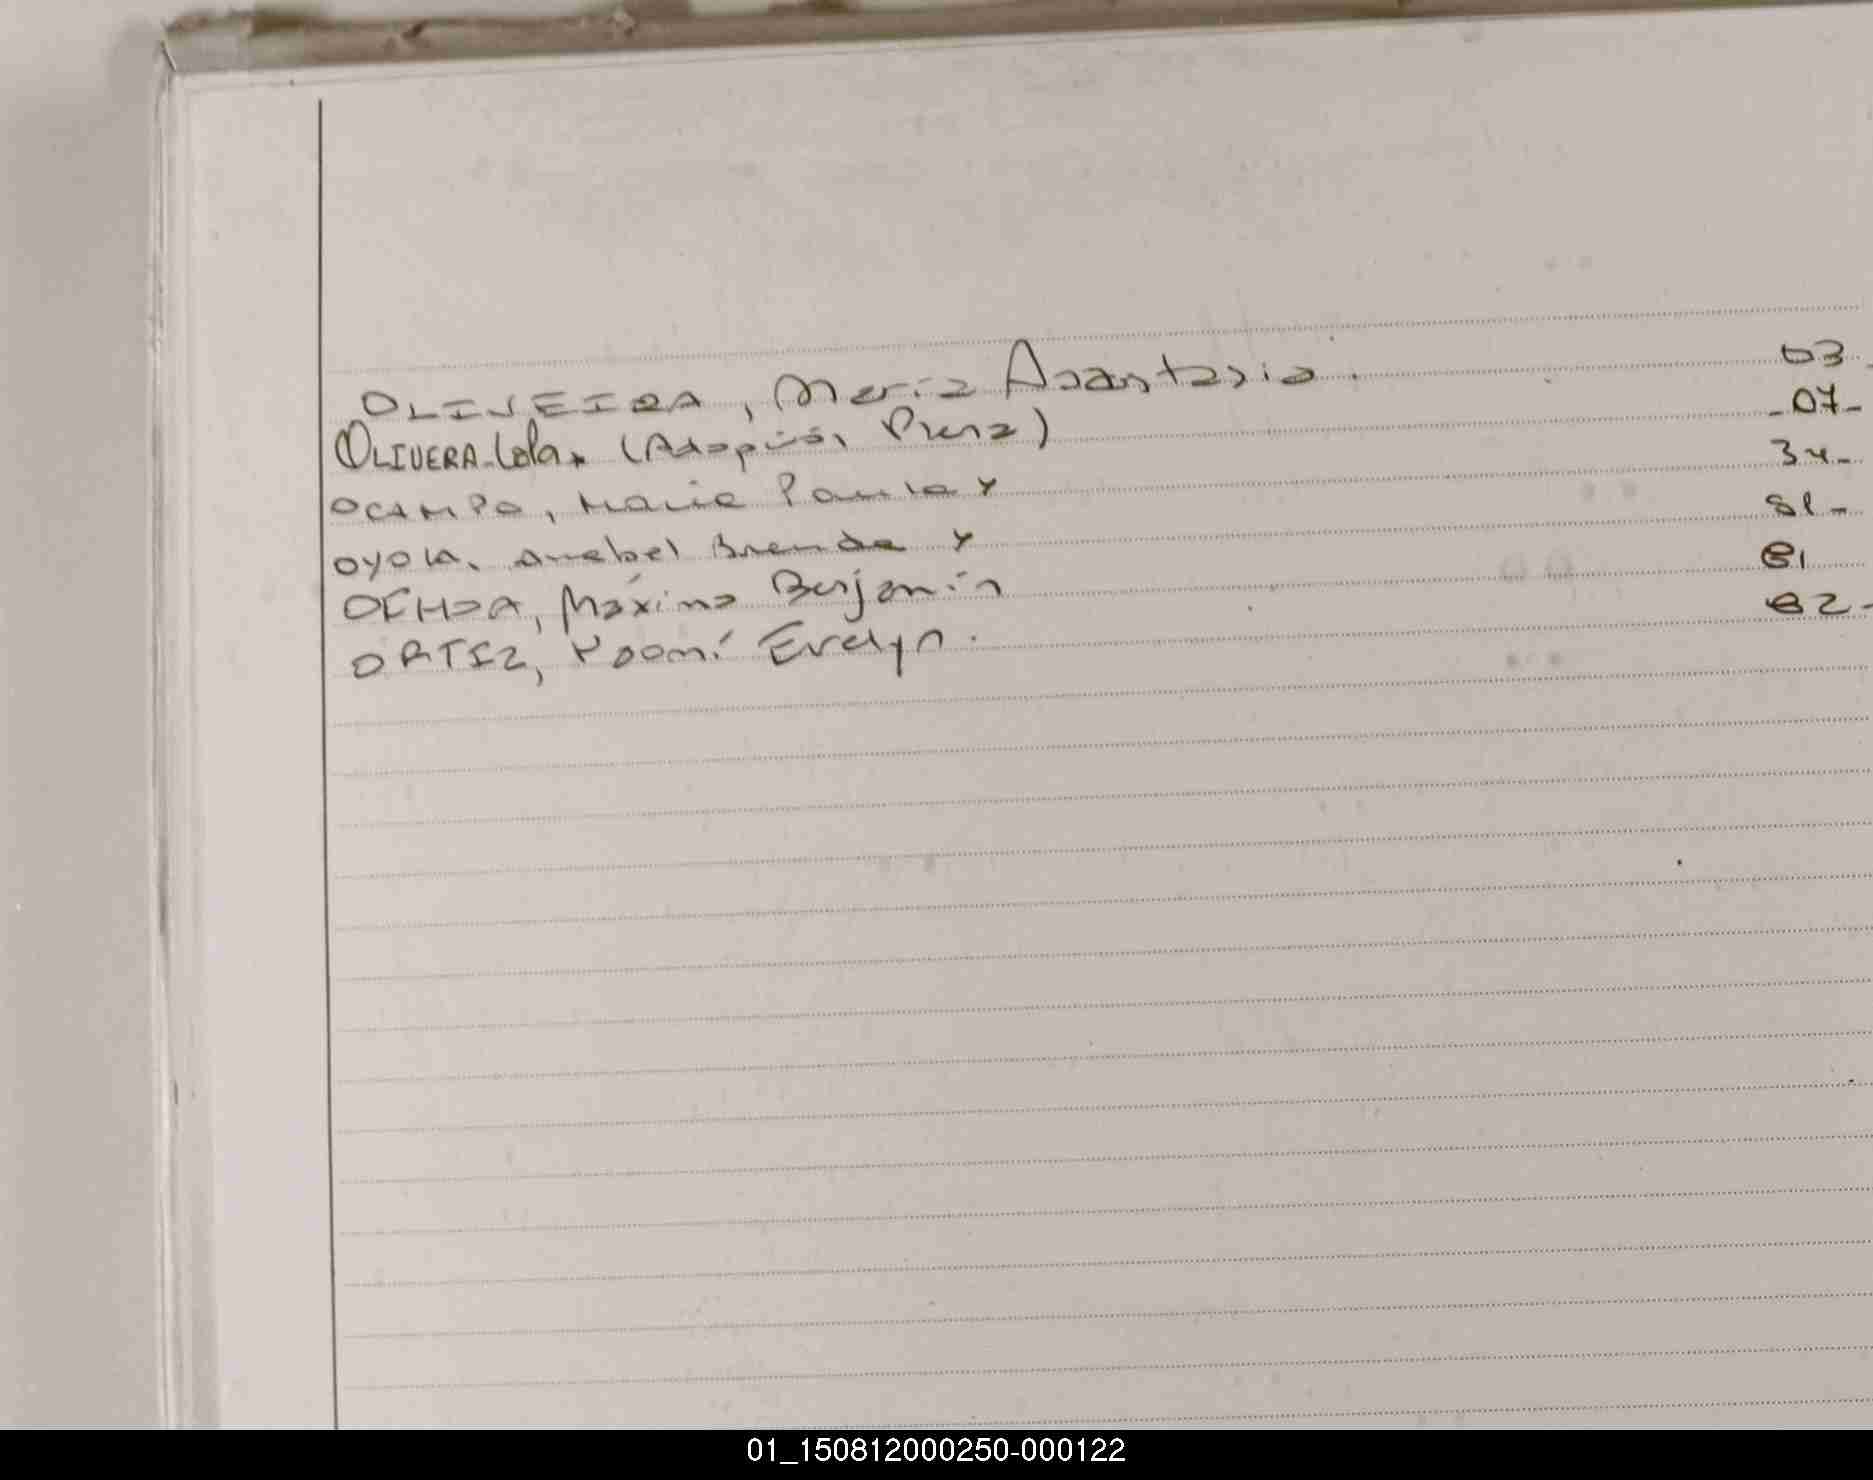 OLIVEIRA, María Anastasia. 03
OLIVERA Lola. (Adopción Plena) -07-
OCAMPO, Maria Paula y 34-
OYOLA, Anabel Brenda y 81-
OCHOA, Máximo Benjamín 81
ORTIZ, Noemí Evelyn. 82-
01_150812000250-000122